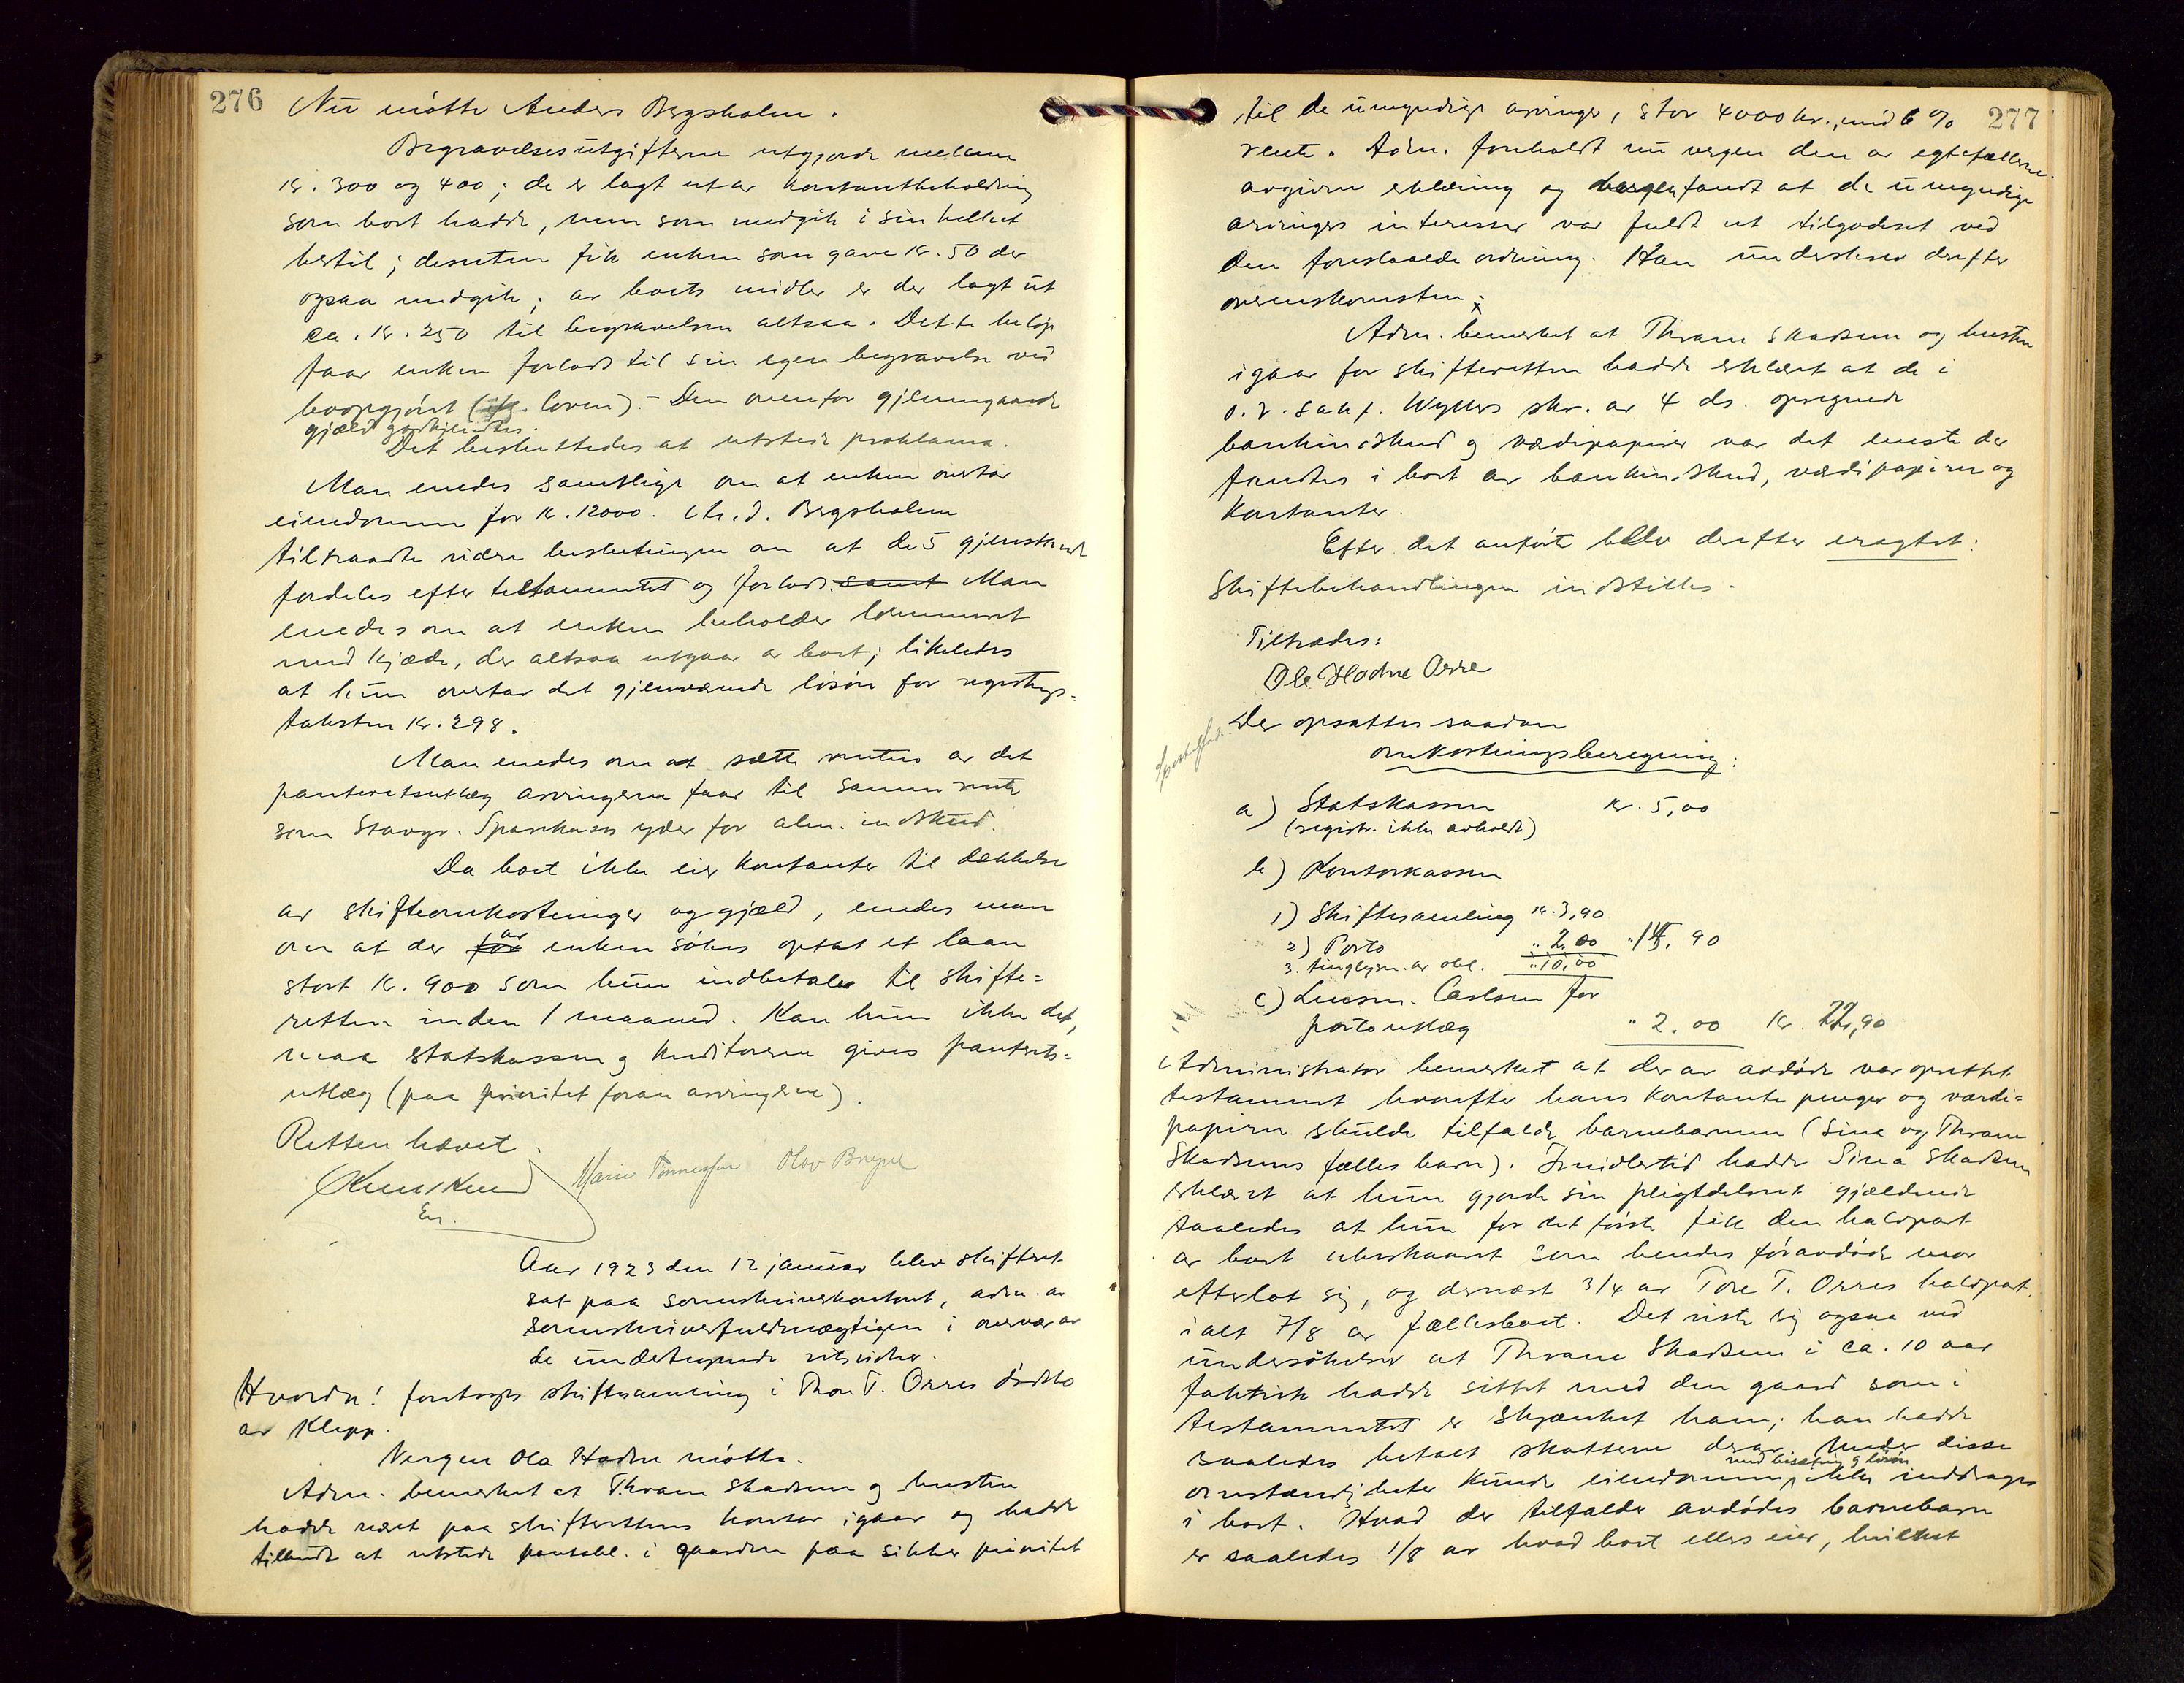 276
Nu møtte Anders Bergsholm.
Begravelsesutgifterne utgjorde mellem
kr. 300 og 400; de er lagt ut av kontantbeholdning
som boet hadde, men som medgik i sin helhet
hertil; desuten fik enken som gave kr. 50 der
ogsaa medgik; av boets midler er der lagt ut
ca. kr. 250 til begravelsen altsaa. Dette beløp
faar enken forlods til sin egen begravelse ved
boopgjøret (          loven). - Den ovenfor gjennemgaaede
gjæld godkjendtes.
Det besluttedes at utstede proklama.
Man enedes samtlige om at enken overtar
eiendommen for kr. 12000.       Bergsholm
tiltraadte videre beslutningen om at de 5 gjenstande
fordeles efter testamentet og forlods. samt Man
enedes om at enken beholder lommeuret
med kjæde, der altsaa utgaar av boet; likeledes
at hun overtar det gjenværende løsøre for registrerings-
taksten kr. 298.
Man enedes om at sætte renten av det
panteretsutlæg arvingerne faar til samme rente
som Stavgr. Sparekasse yder for alm. indskud.
Da boet ikke eier kontanter til dækkelse
av skifteomkostninger og gjæld, enedes man
om at der for av enken søkes optat et laan
stort kr. 900 som hun indbetaler til skifte-
retten inden 1 maaned. Kan hun ikke det,
maa statskassen og kreditorerne gives panterets-
utlæg (paa prioritet foran arvingerne).
Retten hævet.
Marie Tønnessen Olav Bryne
En.
Aar 1923 den 12 januar blev skifteret
sat paa sorenskriverkontoret, adm. av
sorenskriverfuldmægtigen i overvær av
de undertegnede retsvidner.
Hvorda! foretoges skiftesamling i Thore T. Orres dødsbo
av Klepp.
Vergen Ola Hodne møtte.
Adm. bemerket at Thrane Skadsem og hustru
hadde været paa skifterettens kontor igaar og hadde
tilbudt at utstede pantobl. i gaarden paa sikker prioritet
277
til de umyndige arvinger, stor 4000 kr., med 6 %
rente. Adm. foreholdt nu vergen den av egtefællerne
avgivne erklæring og vergen fandt at de umyndige
arvingers interesser var fuldt ut tilgodeset ved
den foreslaaede ordning. Han underskrev derefter
overenskomsten.
Adm. bemerket at Thrane Skadsem og hustru
igaar for skifteretten hadde erklæret at de i
o.r.sakf. Wyllers skr. av 4 ds. opregnede
bankindskud og værdipapirer var det eneste der
fandtes i boet av bankindskud, værdipapirer og
kontanter.
Efter det anførte blev derefter eragtet:
Skiftebehandlingen indstilles.
Tiltrædes:
Ole Hodne Orre
Der opsattes saadan
omkostningsberegning:
a) Statskassen kr. 5,00
(registr. ikke avholdt)
b) Kontorkassen
1) Skiftesamling kr. 3,90
2) Porto " 2.00 " 15.90
3. tinglysn. av obl. " 10,00
c) Lensm. Carlsen for
portoutlæg " 2.00 kr. 22,90
Administrator bemerket at der av avdøde var oprettet
testament hvorefter hans kontante penger og værdi-
papirer skulde tilfalde barnebarnene (Sina og Thrane
Skadsems fælles barn). Imidlertid hadde Sina Skadsem
erklæret at hun gjorde sin pligtdelsret gjældende
saaledes at hun for det første fik den halvpart
av boet ubeskaaret som hendes føravdøde mor
efterlot sig, og dernæst 3/4 av Tore T. Orres halvpart,
ialt 7/8 av fællesboet. Det viste sig ogsaa ved
undersøkelser at Thrane Skadsem i ca. 10 aar
faktisk hadde sittet med den gaard som i
testamentet er skjænket ham; han hadde
saaledes betalt skatterne derav. Under disse
omstændigheter kunde eiendommen med besætning og løsøre ikke inddrages
i boet. Hvad der tilfalder avdødes barnebarn
er saaledes 1/8 av hvad boet ellers eier, hvilket